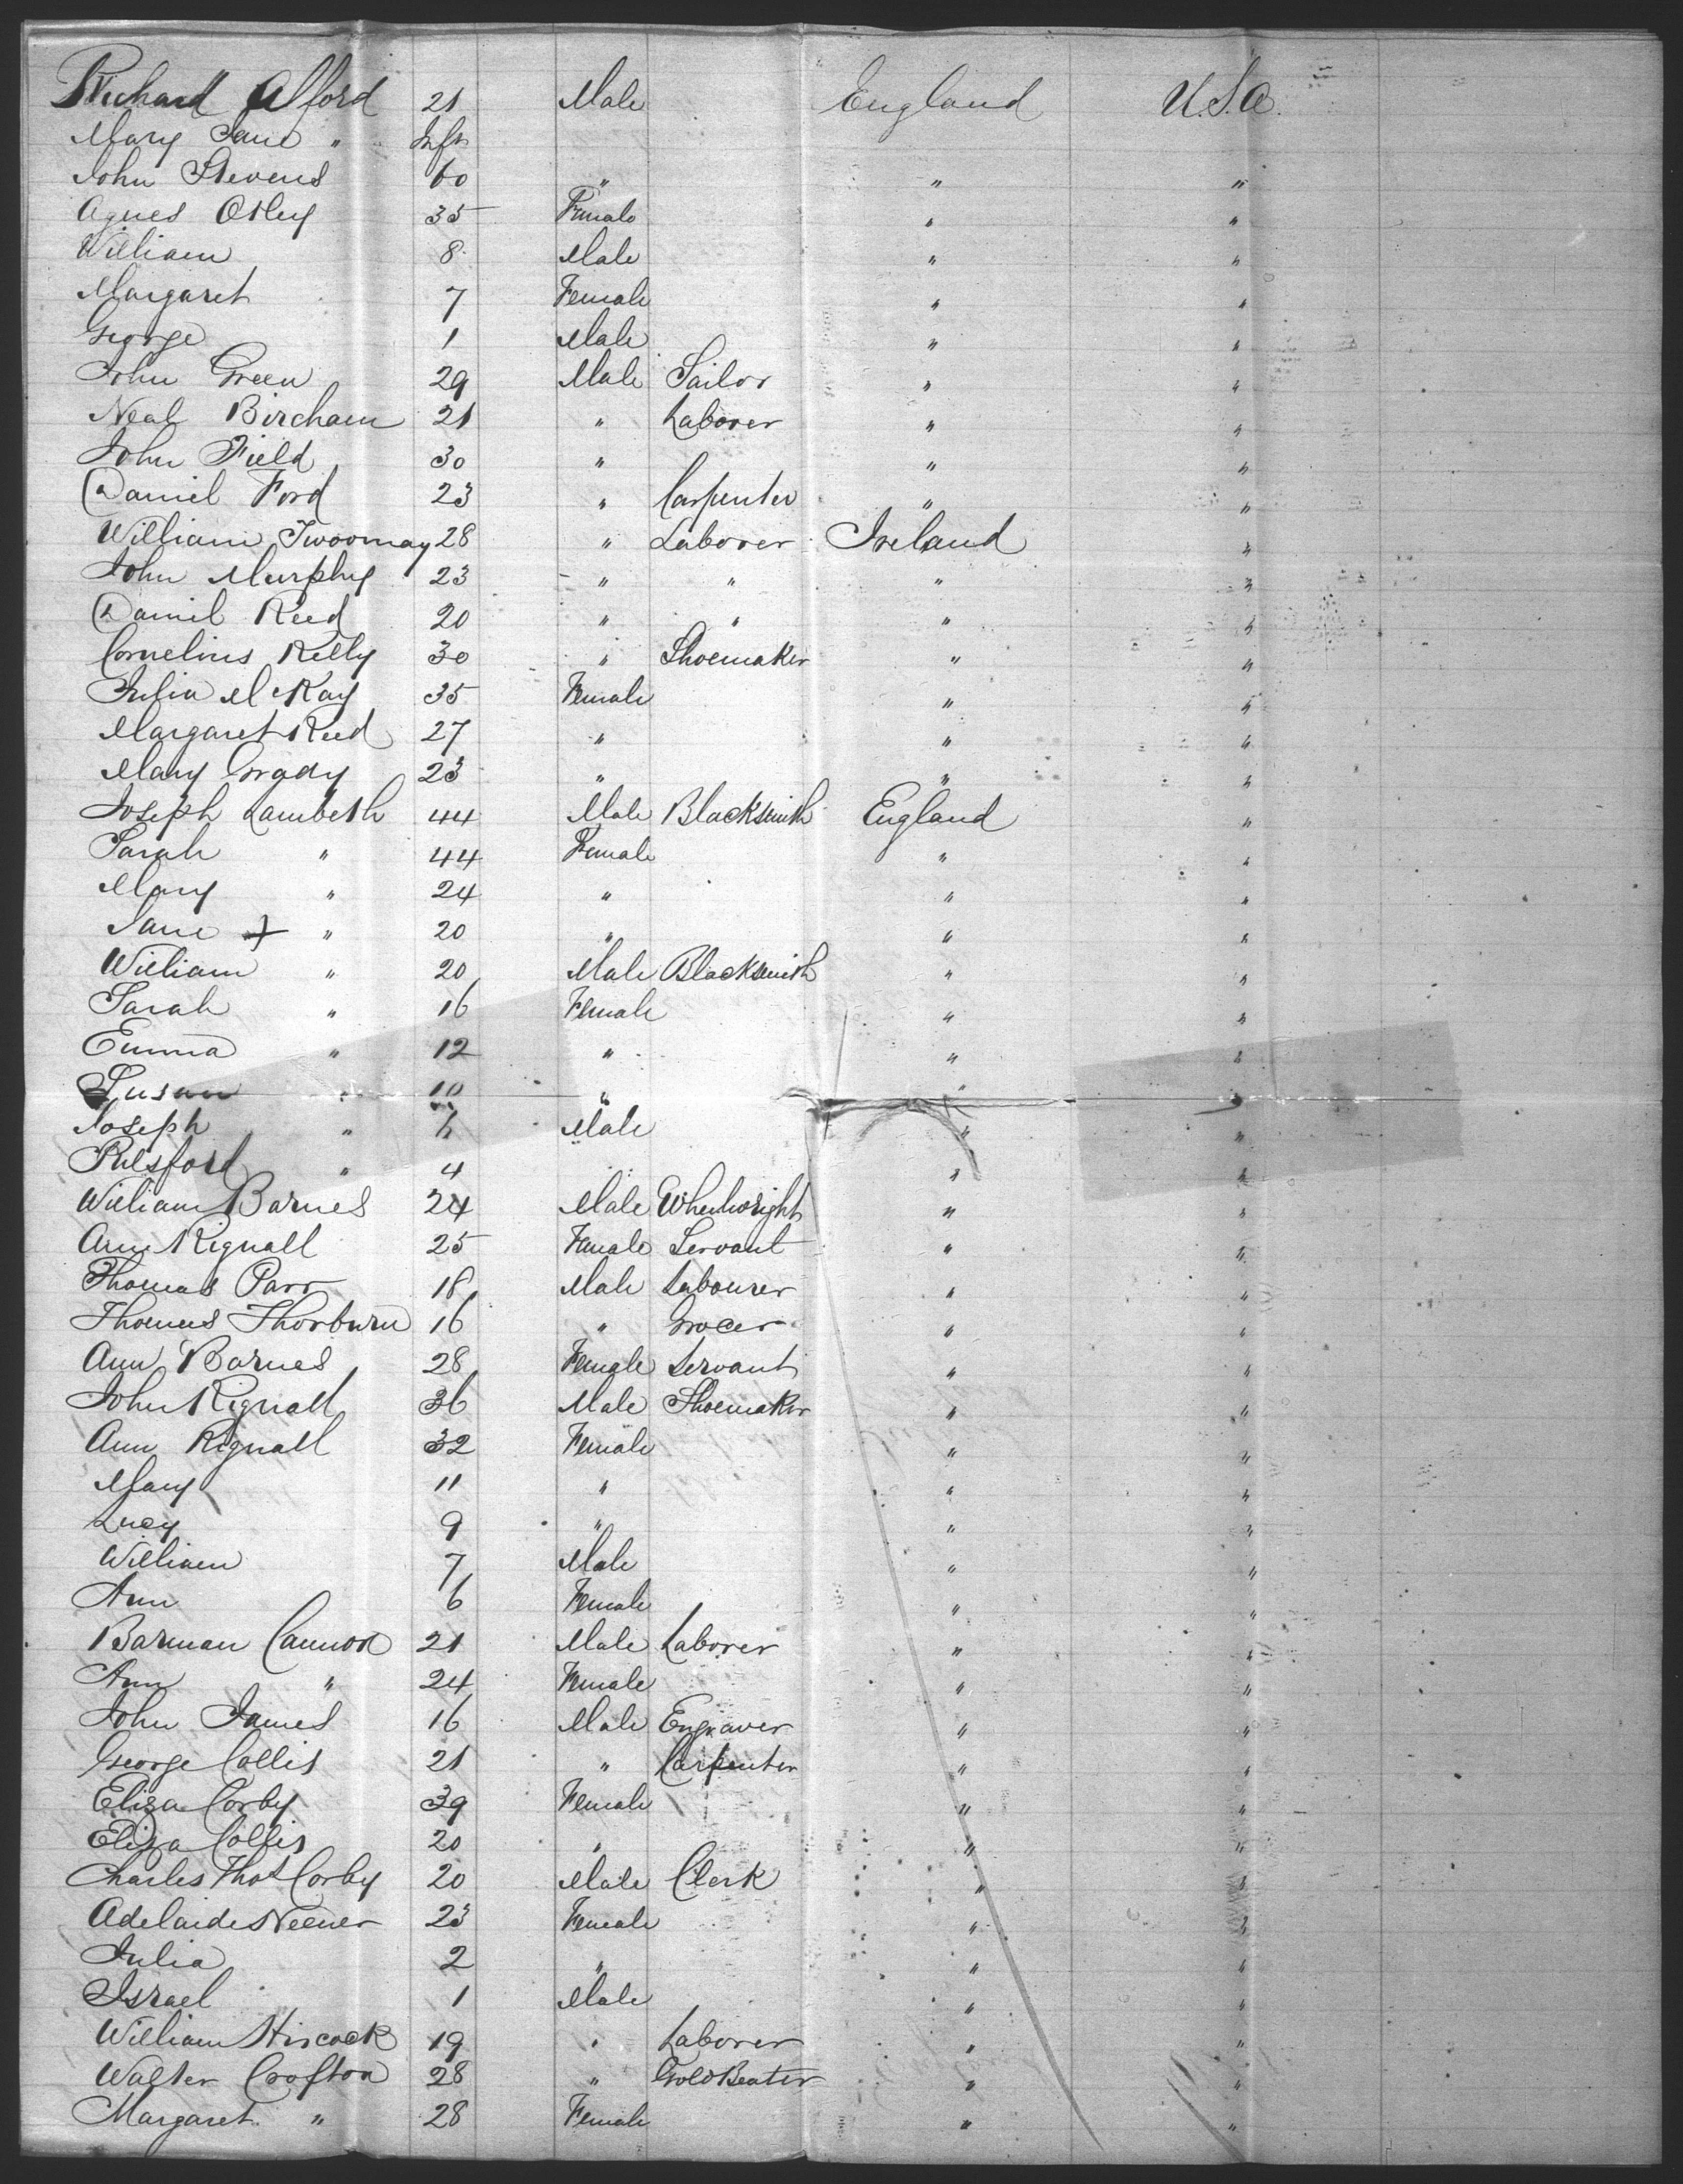 Richard Alford 21 Male England U.S.A.
Mary Jane " Inft
John Stevens 60 " " "
Agnes Otley 35 Female " "
William 8 Male " "
Margaret 7 Female " "
George 1 Male " "
John Green 29 Male Sailor " "
Neal Bircham 21 " Laborer " "
John Field 30 " " "
Daniel Ford 23 " Carpenter " "
William Twoomay 28 " Laborer Ireland "
John Murphy 23 " " " "
Daniel Reed 20 " " " "
Cornelius Kelly 30 " Shoemaker " "
Julia McKay 35 Female " "
Margaret Reed 27 " " "
Mary Grady 23 " " "
Joseph Lambeth 44 Male Blacksmith England "
Sarah " 44 Female " "
Mary " 24 " " "
Jane " 20 " " "
William " 20 Male Blacksmith " "
Sarah " 16 Female " "
Emma " 12 " " "
Susan " 10 " "
Joseph " Male " "
" 4 " "
William Barnes 24 Male Wheelwright " "
Ann Rignall 25 Female Servant " "
Thomas Parr 18 Male Labourer " "
Thomas Thorburn 16 " Grocer " "
Ann Barnes 28 Female Servant " "
John Rignall 36 Male Shoemaker " "
Ann Rignall 32 Female " "
Mary 11 " " "
Lucy 9 " " "
William 7 Male " "
Ann 6 Female " "
Barman Cannon 21 Male Laborer " "
Ann " 24 Female " "
John James 16 Male Engraver " "
George Collis 21 " Carpenter " "
Eliza Corby 39 Female " "
Eliza Collis 20 " " "
Charles Thos Corby 20 Male Clerk " "
Adelaide 23 Female " "
Julia 2 " " "
Israel 1 Male " "
William Hiscock 19 " Laborer " "
Walter Crofton 28 " Gold Beater " "
Margaret " 28 Female " "